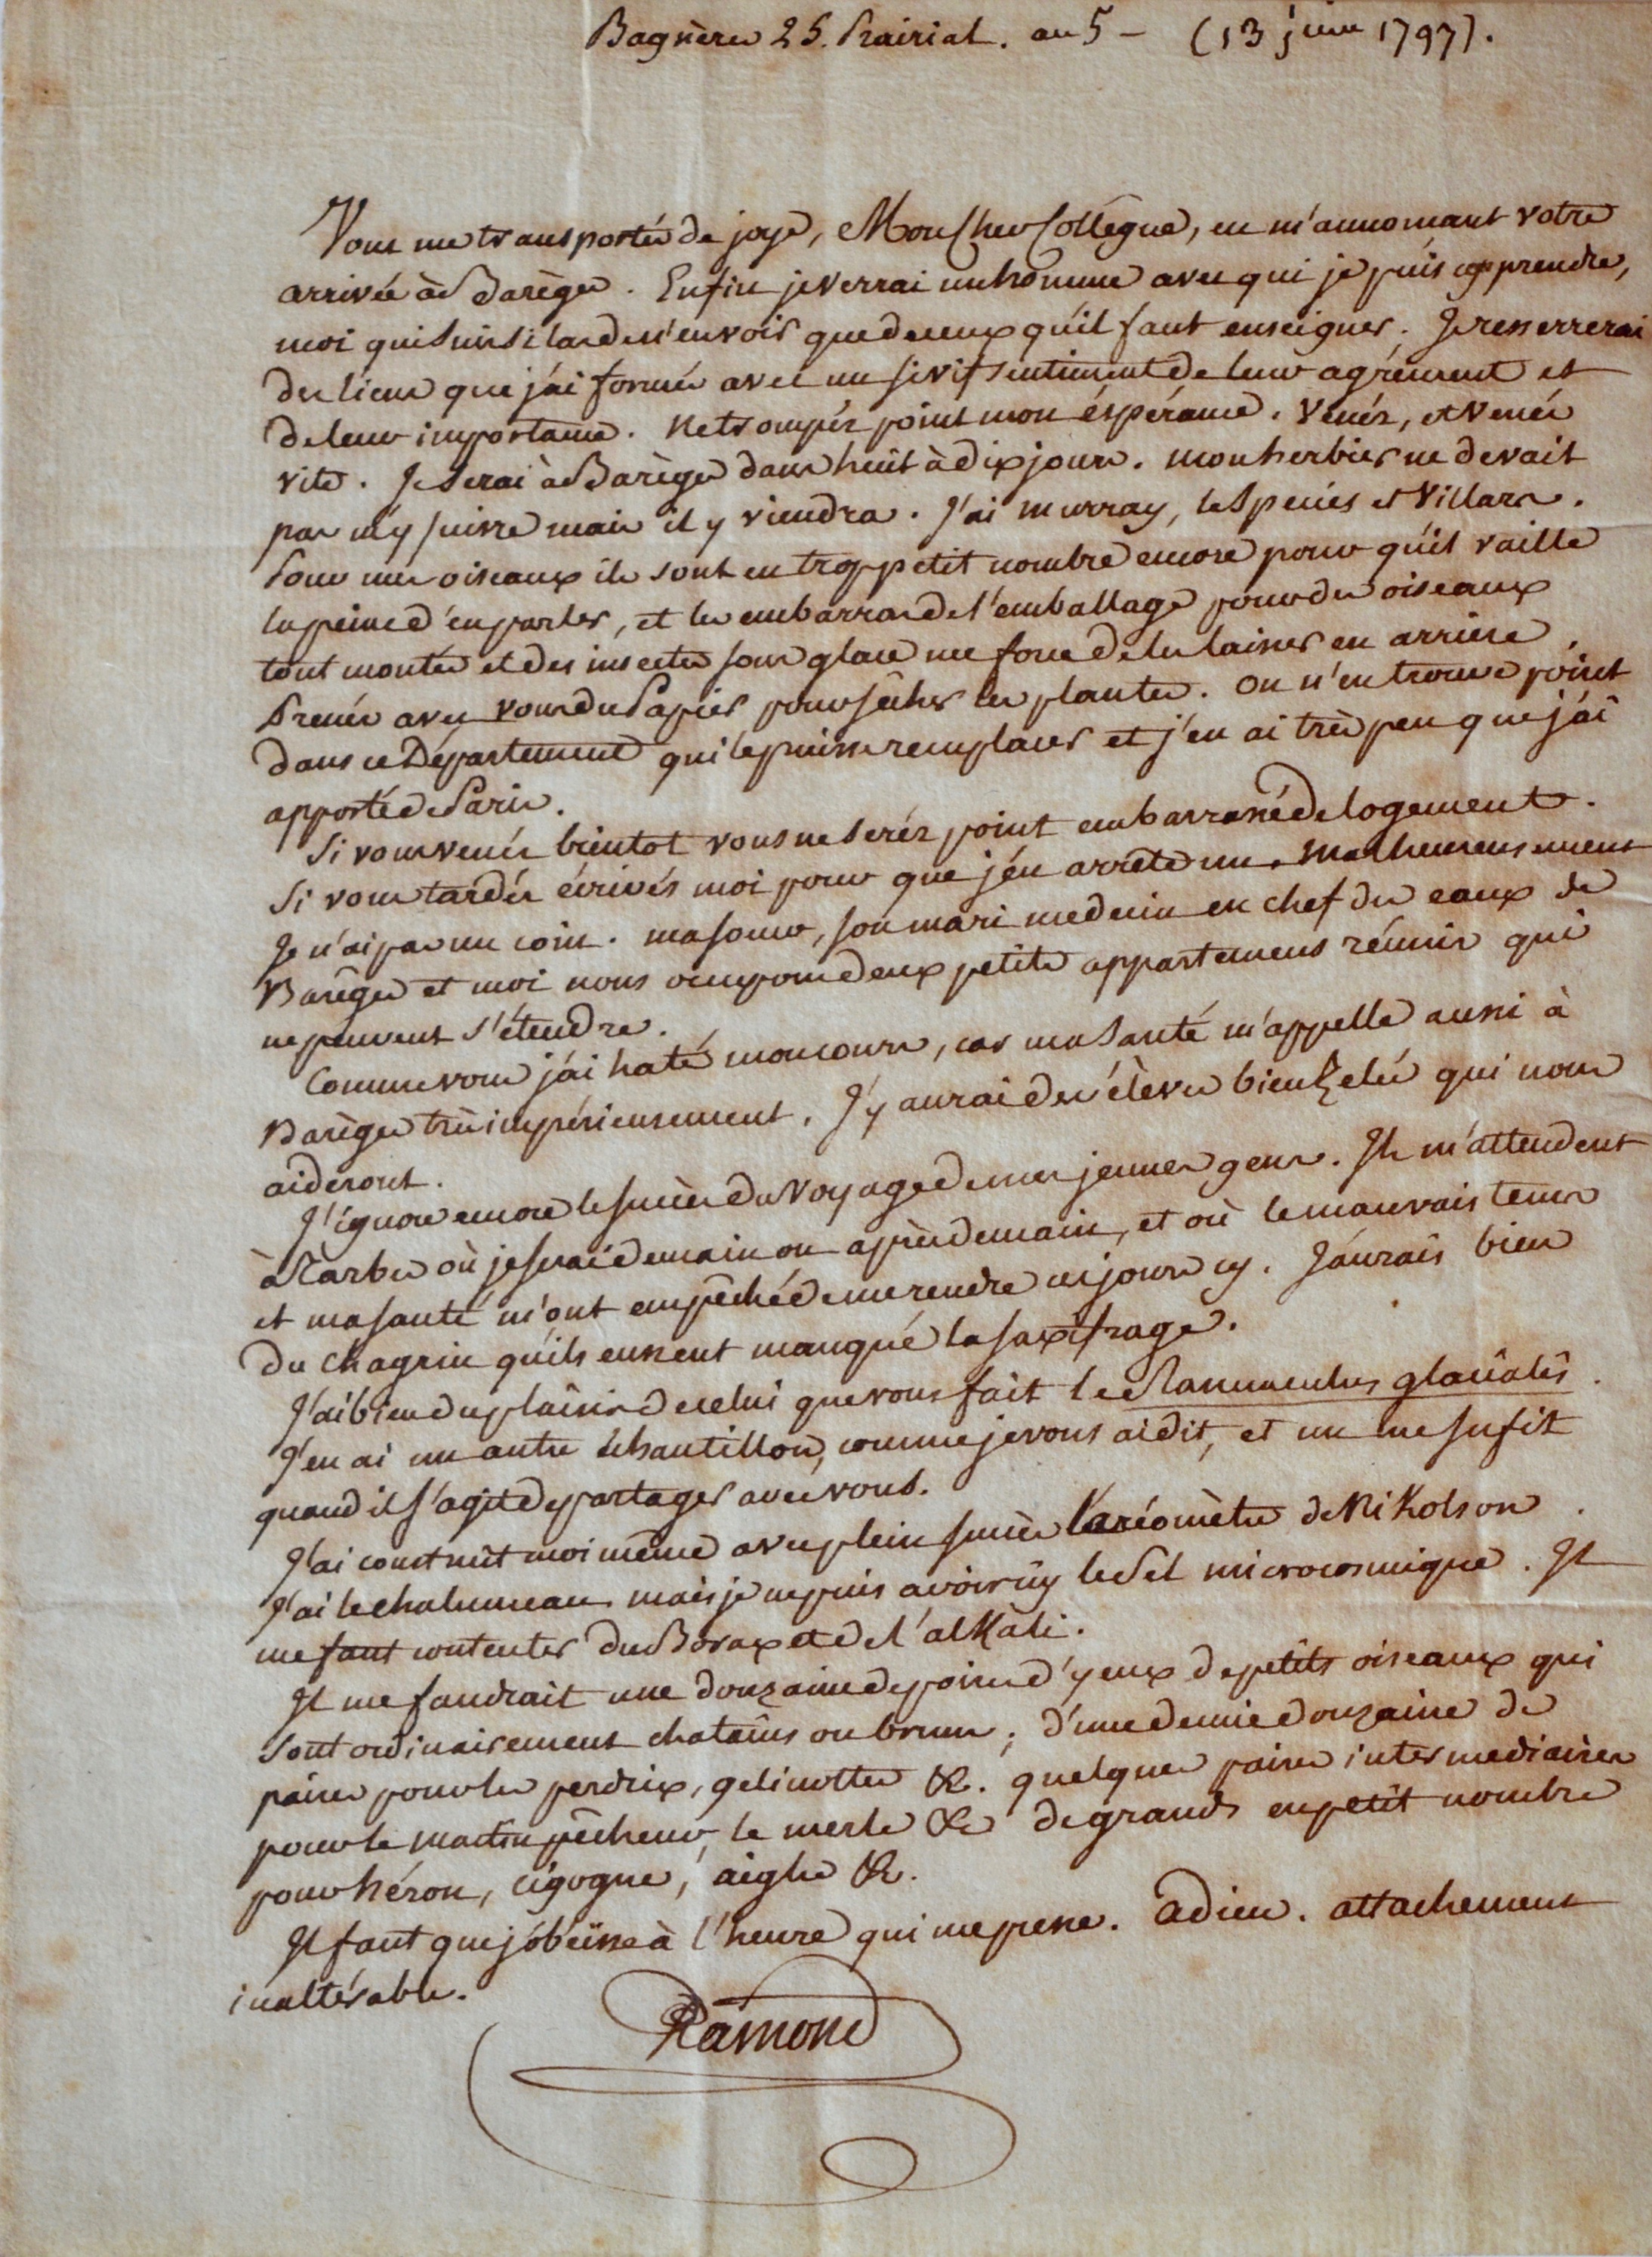 Bagnères 25. Prairial. an 5 – (13 juin 1797).
Vous me transportés de joye, Mon cher Collègue, en m'annonçant votre
arrivée à Barèges. Enfin je verrai un homme avec qui je puis apprendre,
moi qui suis si las de n'en voir que de ceux qu'il faut enseigner. Je resserrerai
des liens que j'ai formés avec un si vif sentiment de leur agrément et
de leur importance. Ne trompés point mon éspérance. Venés, et venés
vite. Je serai à Barèges dans huit à dix jours. mon herbier ne devait
pas m'y suivre mais il y viendra. J'ai murray, le Species et Villars.
Pour mes oiseaux ils sont en trop petit nombre encore pour qu'il vaille
la peine d'en parler, et les embarras de l'emballage pour des oiseaux
tout montés et des insectes sous glace me force de les laisser en arriere.
Prenés avec vous du Papier pour sécher les plantes. On n'en trouve point
dans ce Département qui le puisse remplacer et j'en ai très peu que j'ai
apporté de Paris.
Si vous venés bientot vous ne serés point embarrassé de logement.
Si vous tardés écrivés moi pour que j'en arrête un. Malheureusement
Je n'ai pas un coin. ma sœur, son mari medecin en chef des eaux de
Barèges et moi nous occupons deux petits appartemens réunis qui
ne peuvent s'étendre.
Comme vous j'ai haté mon cours, car ma santé m'appelle aussi à
Barèges très impérieusement. J'y aurai des élèves bien zelés qui nous
aideront.
J'ignore encore le succès du voyage de mes jeunes gens. Ils m'attendent
à Tarbes où je serai demain ou après demain, et où le mauvais tems
et ma santé m'ont empêché de me rendre ces jours cy. J'aurais bien
du chagrin qu'ils eussent manqué la saxifrage.
J'ai bien du plaisir de celui que vous fait le Ranunculus glacialis.
J'en ai un autre échantillon, comme je vous ai dit, et un me sufit
quand il s'agit de partager avec vous.
J'ai construit moi même avec plein succès l'aréomètre de Nikolson.
J'ai le chalumeau mais je ne puis avoir icy le Sel microcosmique. Il
me faut contenter du Borax et de l'alkali.
Il me faudrait une douzaine de paires d'yeux de petits oiseaux qui
sont ordinairement chatains ou bruns; d'une demie douzaine de
paires pour les perdrix, gelinottes &c. quelques paires intermediaires
pour le martin pêcheur, le merle &c de grands en petit nombre
pour héron, cigogne, aigles &c.
Il faut que j'obéisse à l'heure qui me presse. adieu. attachement
inaltérable.
Ramond